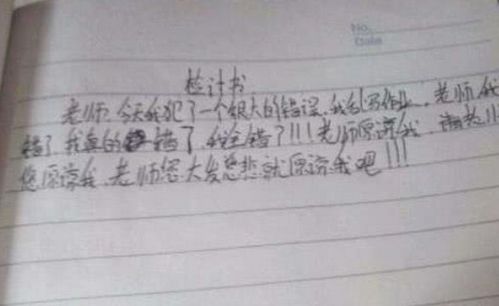 No.
Date
检计书
老师,今天我犯了一个很大的错误,我乱写作业,老师我
错了,我真的错了,我全错了!!!老师原谅我,谢谢!!
您原谅我,老师您大发慈悲就原谅我吧!!!